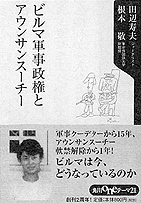 ビルマ軍事政権と
アウンサンスーチー
田辺寿夫
根本 敬
軍事クーデターから15年、
アウンサンスーチー
軟禁解除から1年!
ビルマは今、
どうなっているのか
角川oneテーマ21